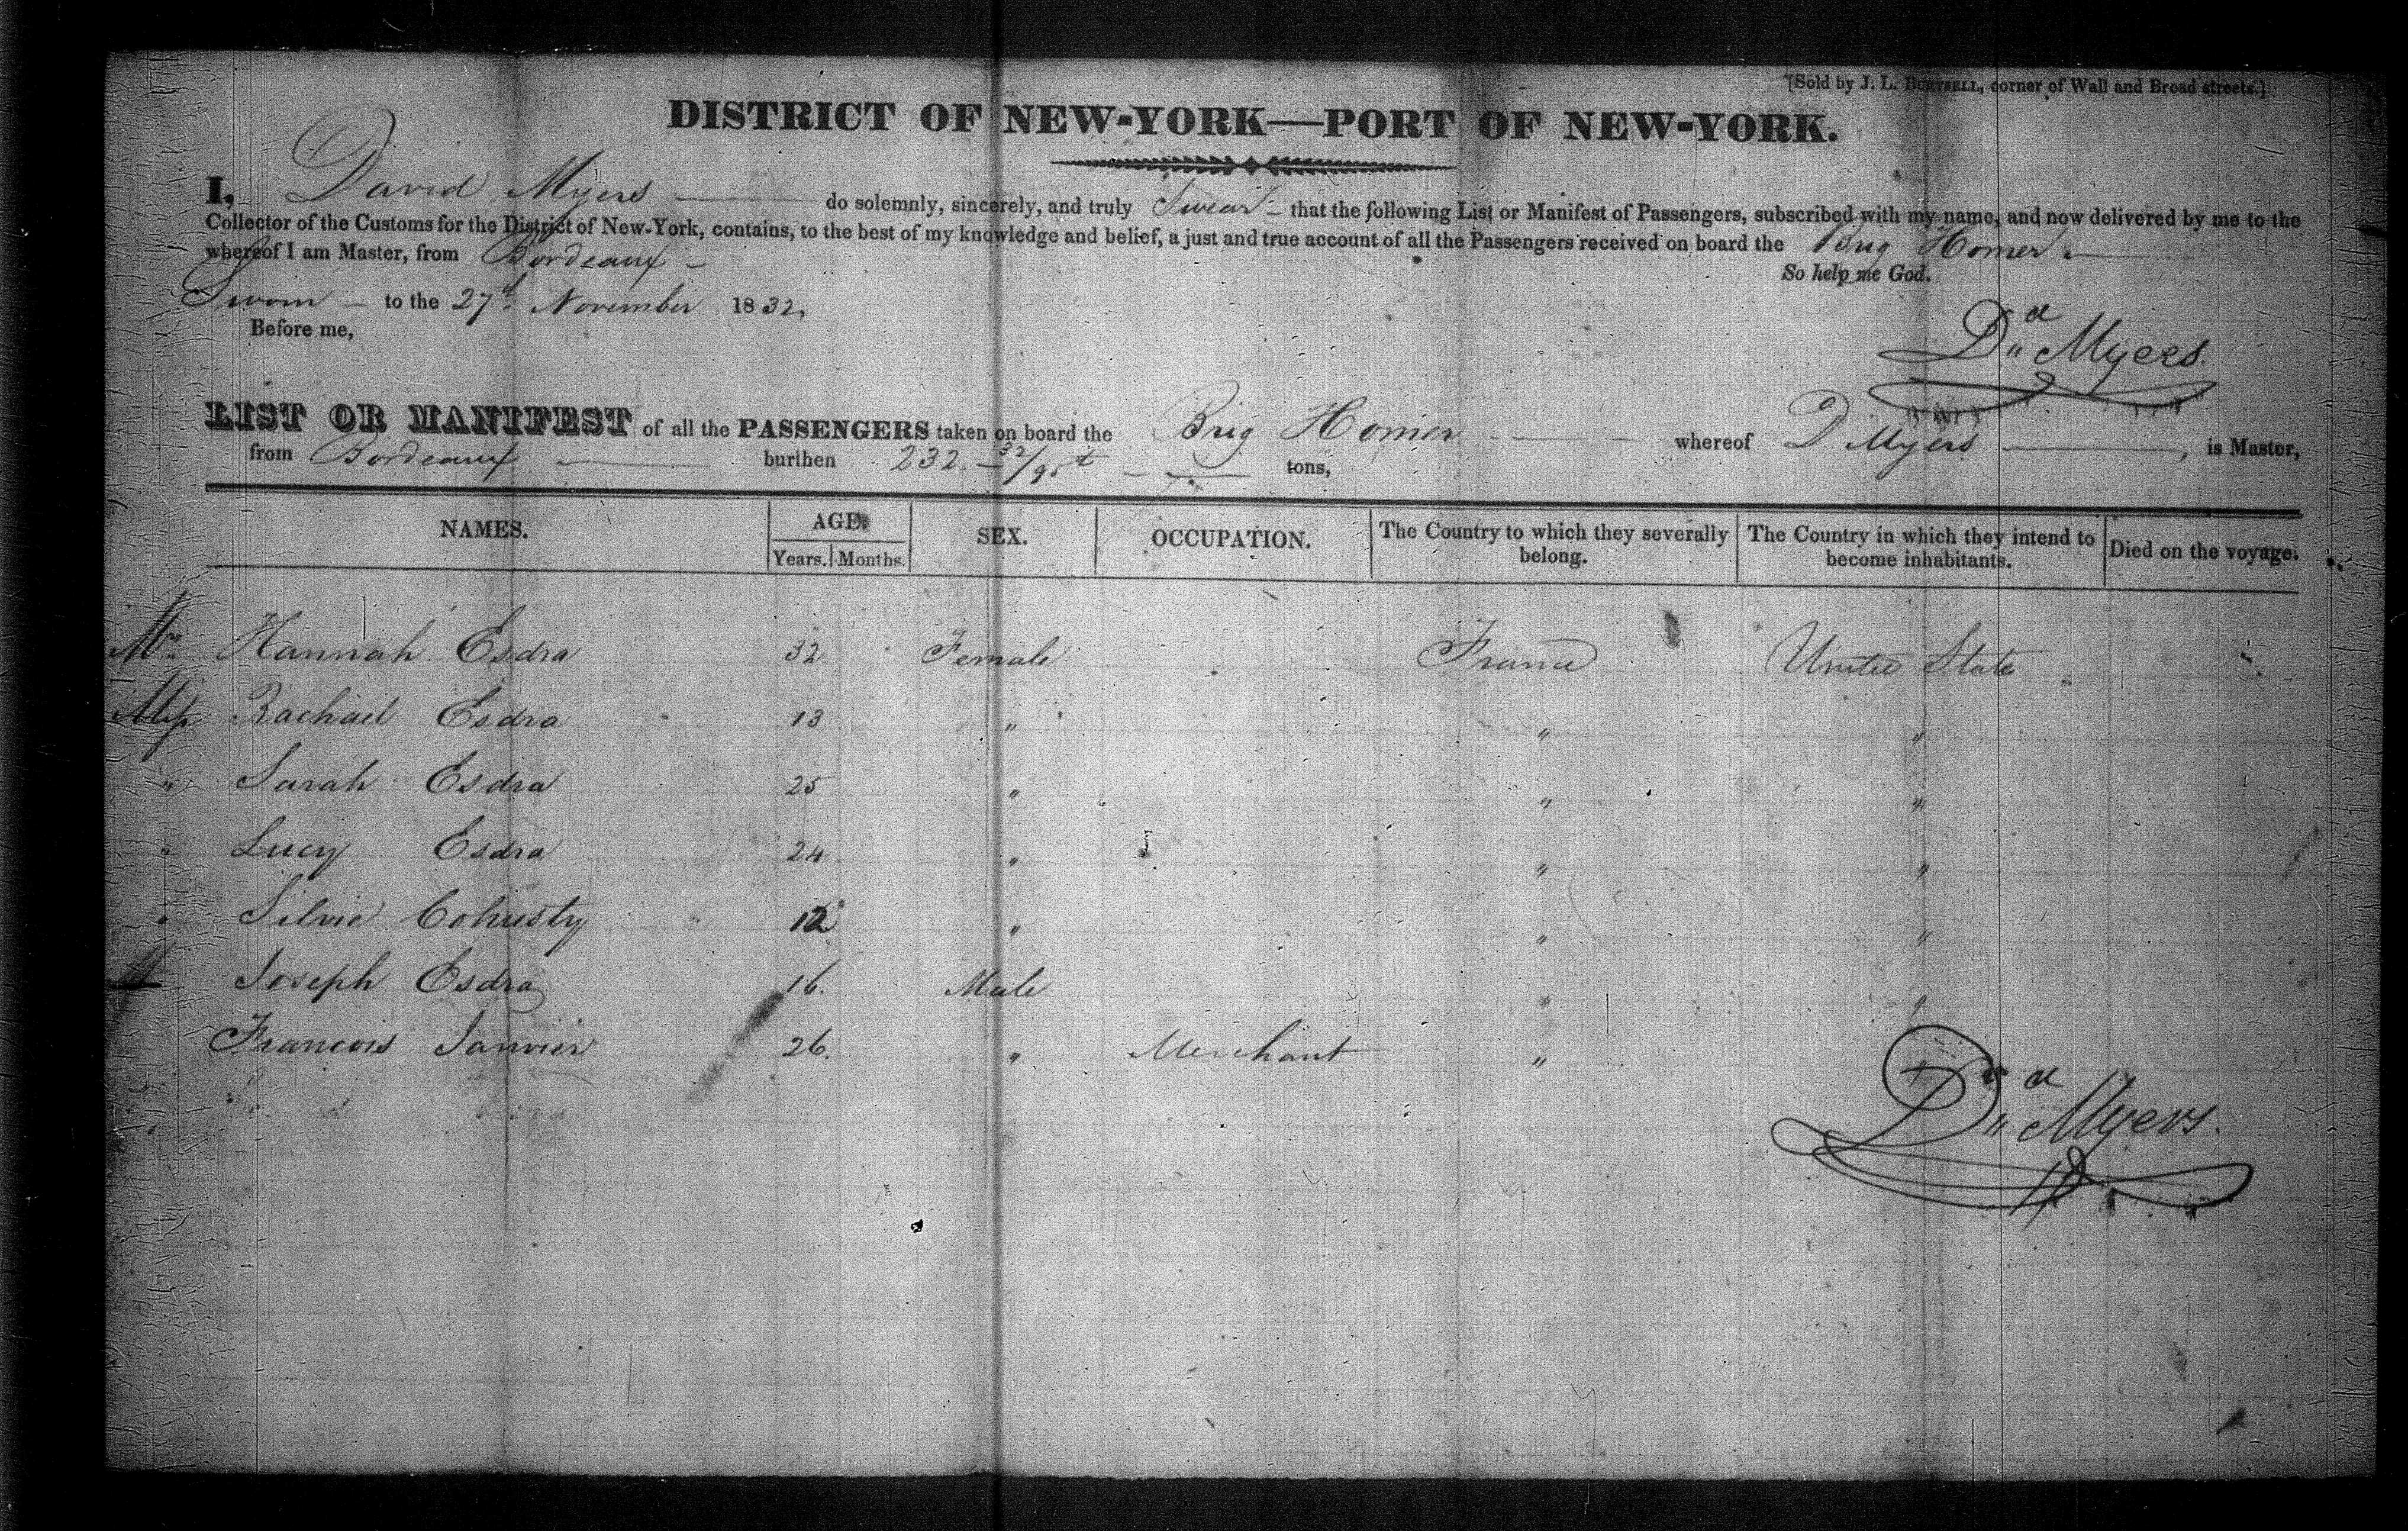 [Sold by J. L. BURTSELL, corner of Wall and Broad streets.]
DISTRICT OF NEW-YORK—PORT OF NEW-YORK.
I, David Myers do solemnly, sincerely, and truly Swear that the following List or Manifest of Passengers, subscribed with my name, and now delivered by me to the
Collector of the Customs for the District of New-York, contains, to the best of my knowledge and belief, a just and true account of all the Passengers received on board the Brig Homer
whereof I am Master, from Bordeaux
So help me God.
Sworn to the 27th November 1832,
Before me,
Dd Myers.
LIST OR MANIFEST of all the PASSENGERS taken on board the Brig Homer whereof D Myers, is Master,
from Bordeaux burthen 232 32/95t tons,
NAMES. AGE. SEX. OCCUPATION. The Country to which they severally belong. The Country in which they intend to become inhabitants. Died on the voyage.
Years. Months.
Mrs Hannah Esdra 32 Female France United State
Miss Rachael Esdra 13 " " "
" Sarah Esdra 25 " " "
" Lucy Esdra 24 " " "
" Silvie 12 " " "
M Joseph Esdra 16. Male " "
Francois Janvier 26. " Merchant "
Dd Myers.